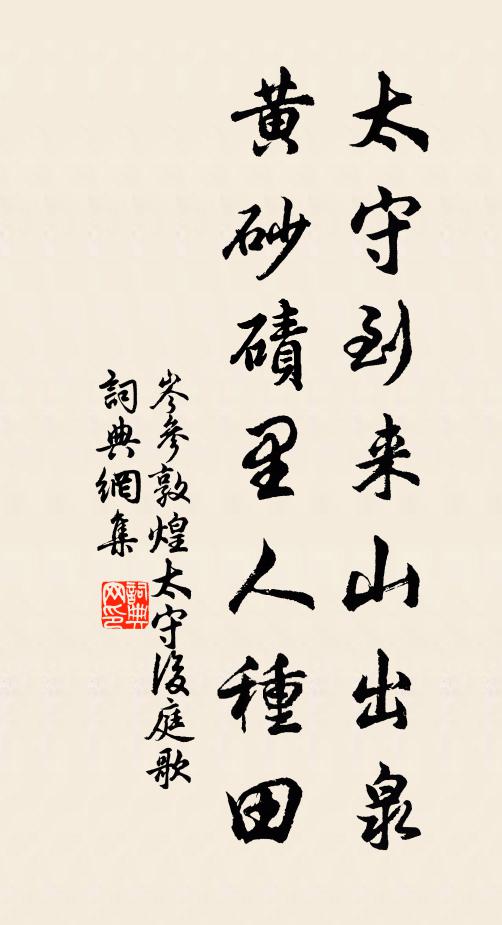 太守到来山出泉
黄砂磧里人種田
岑參敦煌太守後庭歌
詞典網集
詞典网印